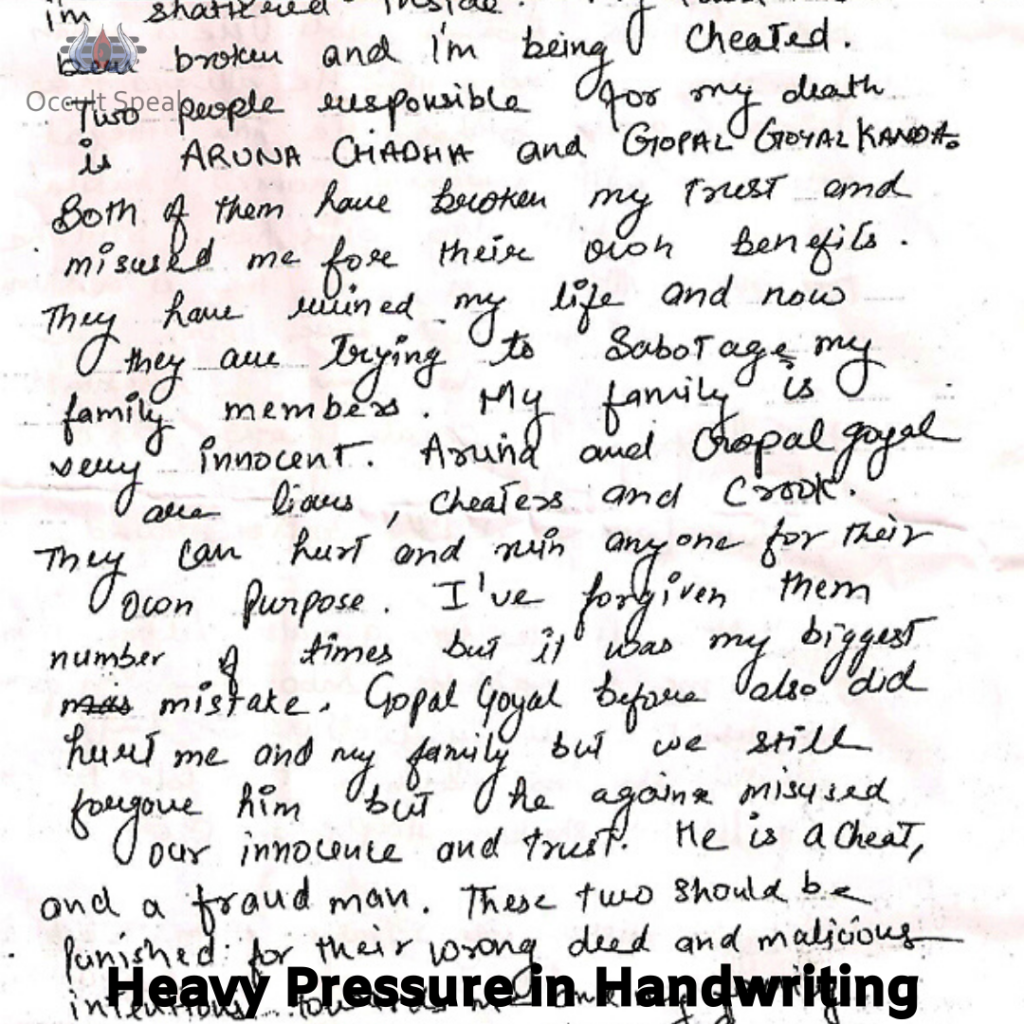 im shattered inside. My
been broken and i'm being cheated.
Occult Speak
Two people responsible for my death
is ARUNA CHADHA and GOPAL GOYAL KANDA.
Both of them have broken my trust and
misused me fore their own benefits.
They have ruined my life and now
they are trying to sabotage my
family members. My family is
very innocent. Aruna and Gopal goyal
are liars, cheaters and crook.
They can hurt and ruin anyone for their
own purpose. I've forgiven them
number of times but it was my biggest
mistake. Gopal Goyal before also did
hurt me and my family but we still
forgave him but he againe misused
our innocence and trust. He is a cheat,
and a fraud man. These two should be
punished for their wrong deed and malicious
intentions towards me and my family
Heavy Pressure in Handwriting